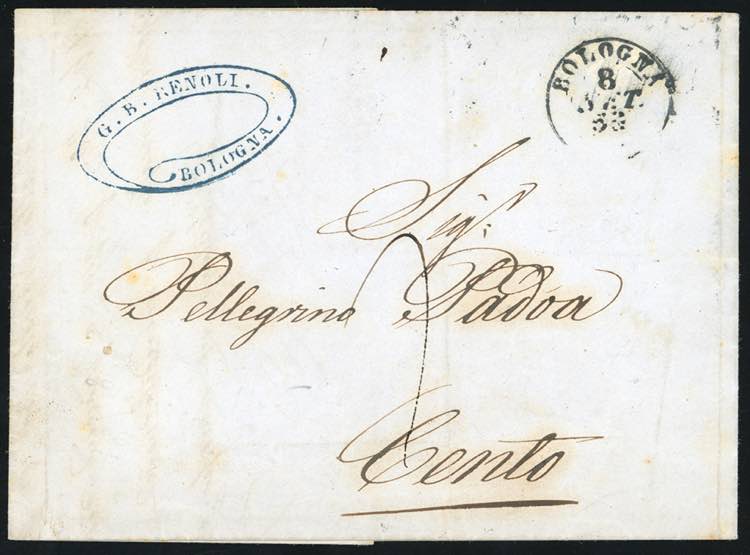 G. B. RENOLI.
BOLOGNA.
BOLOGNA
8
SET.
53
Sigr.
Pellegrino Padoa
Cento